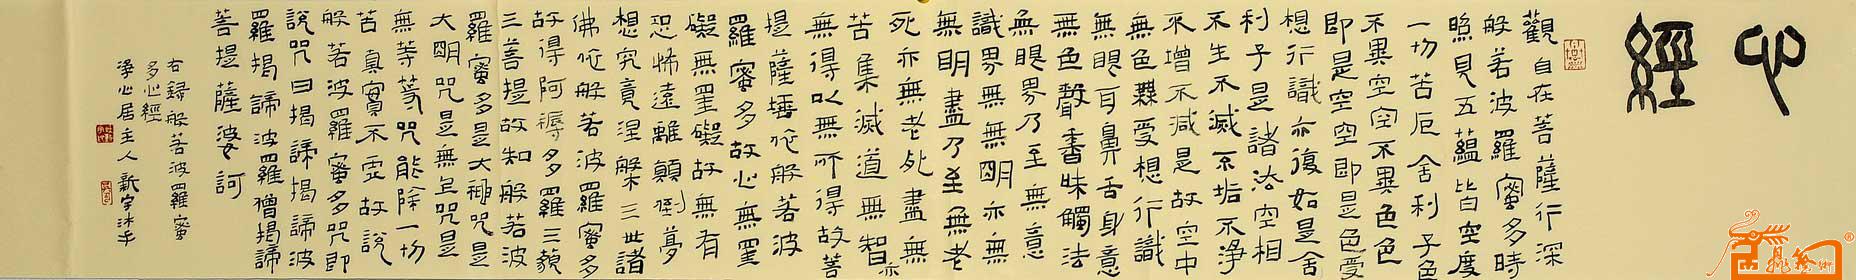 心經
觀自在菩薩行深
般若波羅蜜多時
照見五蘊皆空度
一切苦厄舍利子色
不異空空不異色色
即是空空即是色受
想行識亦復如是舍
利子是諸法空相
不生不滅不垢不淨
不增不減是故空中
無色無受想行識
無眼耳鼻舌身意
無色聲香味觸法
無眼界乃至無意
識界無無明亦無
無明盡乃至無老
死亦無老死盡無
苦集滅道無智亦
無得以無所得故菩
提薩埵依般若波
羅蜜多故心無罣
礙無罣礙故無有
恐怖遠離顛倒夢
想究竟涅槃三世諸
佛依般若波羅蜜多
故得阿耨多羅三藐
三菩提故知般若波
羅蜜多是大神咒是
大明咒是無上咒是
無等等咒能除一切
苦真實不虛故說
般若波羅蜜多咒即
說咒曰揭諦揭諦波
羅揭諦波羅僧揭諦
菩提薩婆訶
右錄般若波羅蜜
多心經
淨心居主人新宇沐手